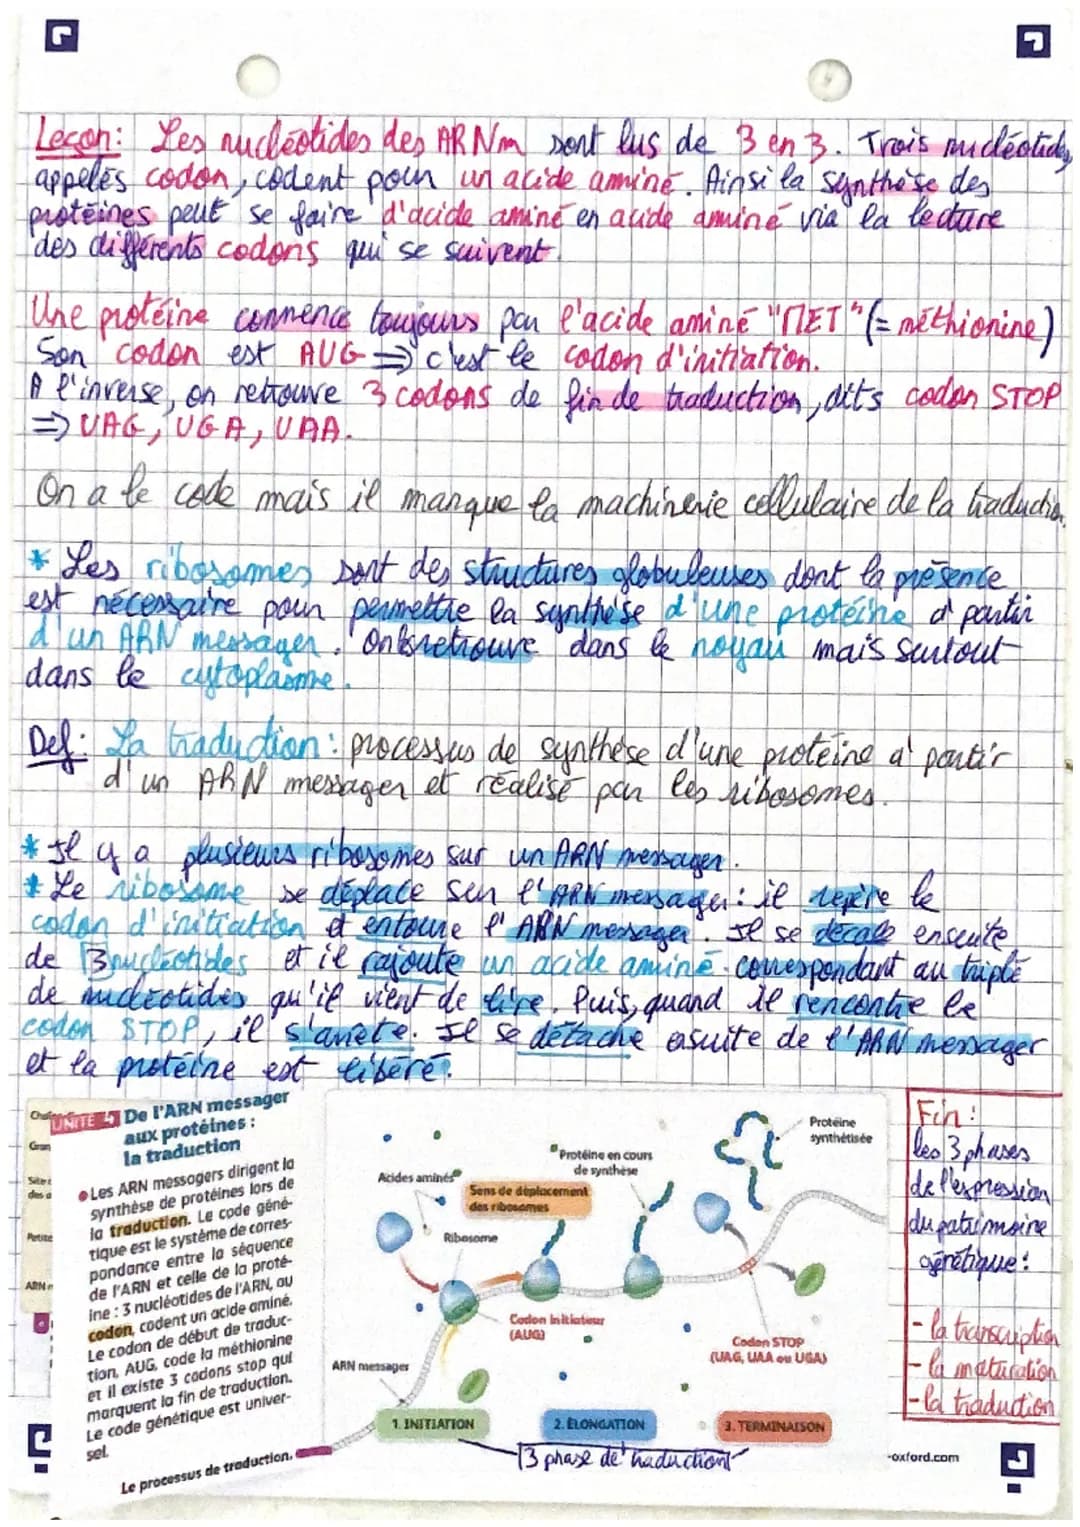 Leçon: Les nucléotides des ARNm sont lus de 3 en 3. Trois nucléotides,
appelés codon, codent pour un acide aminé. Ainsi la synthèse des
protéines peut se faire d'acide aminé en acide aminé via la lecture
des différents codons qui se suivent.
Une protéine commence toujours par l'acide aminé "MET" (= méthionine)
Son codon est AUG => c'est le codon d'initiation.
A l'inverse, on retrouve 3 codons de fin de traduction, dits codon STOP
=> UAG, UGA, UAA.
On a le code mais il manque la machinerie cellulaire de la traduction.
* Les ribosomes sont des structures globuleuses dont la présence
est nécessaire pour permettre la synthèse d'une protéine à partir
d'un ARN messager. On les retrouve dans le noyau mais surtout
dans le cytoplasme.
Def: La traduction: processus de synthèse d'une protéine à partir
d'un ARN messager et réalisé par les ribosomes.
* Il y a plusieurs ribosomes sur un ARN messager.
* Le ribosome se déplace sur l'ARN messager: il repère le
codon d'initiation et entoure l'ARN messager. Il se décale ensuite
de 3 nucléotides et il rajoute un acide aminé correspondant au triplé
de nucléotides qu'il vient de lire. Puis, quand il rencontre le
codon STOP, il s'arrête. Il se détache esuite de l'ARN messager
et la protéine est libéré.
UNITÉ 4 De l'ARN messager
aux protéines :
la traduction
● Les ARN messagers dirigent la
synthèse de protéines lors de
la traduction. Le code géné-
tique est le système de corres-
pondance entre la séquence
de l'ARN et celle de la proté-
ine : 3 nucléotides de l'ARN, ou
codon, codent un acide aminé.
Le codon de début de traduc-
tion, AUG, code la méthionine
et il existe 3 codons stop qui
marquent la fin de traduction.
Le code génétique est univer-
sel.
Le processus de traduction.
Gran
Site
des a
Petite
ARN
Acides aminés
Protéine en cours
de synthèse
Protéine
synthétisée
Sens de déplacement
des ribosomes
Ribosome
Codon initiateur
(AUG)
Codon STOP
(UAG, UAA ou UGA)
ARN messager
1. INITIATION
2. ÉLONGATION
3. TERMINAISON
3 phase de traduction
Fin:
les 3 phases
de l'expression
du patrimoine
génétique:
- la transcription
- la maturation
- la traduction
-oxford.com